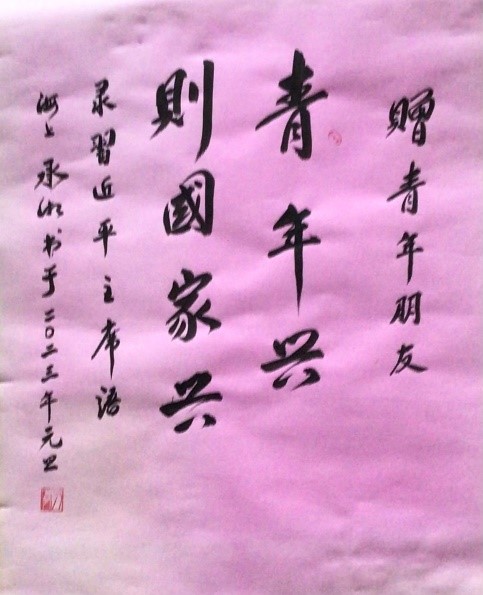 贈青年朋友
青年兴
則國家兴
录習近平主席语
海上承湘书于二〇二三年元旦